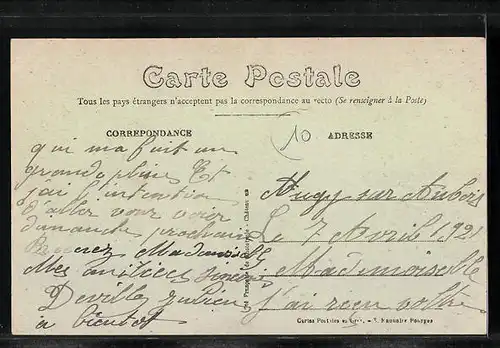 Carte Postale
Tous les pays étrangers n'acceptent pas la correspondance au recto (Se renseigner à la Poste)
CORREPONDANCE
10
ADRESSE
qui ma fait un
grand plaisir Et
j'ai l'intention
d'aller vous voir
dimanche prochain
Recevez Mademoiselle
Mes amitiés
Devilles Julien
a bientot
Augy sur Aubois
Le 7 Avril 1921
Mademoiselle
J'ai reçu votre
Cartes Postales en Gros